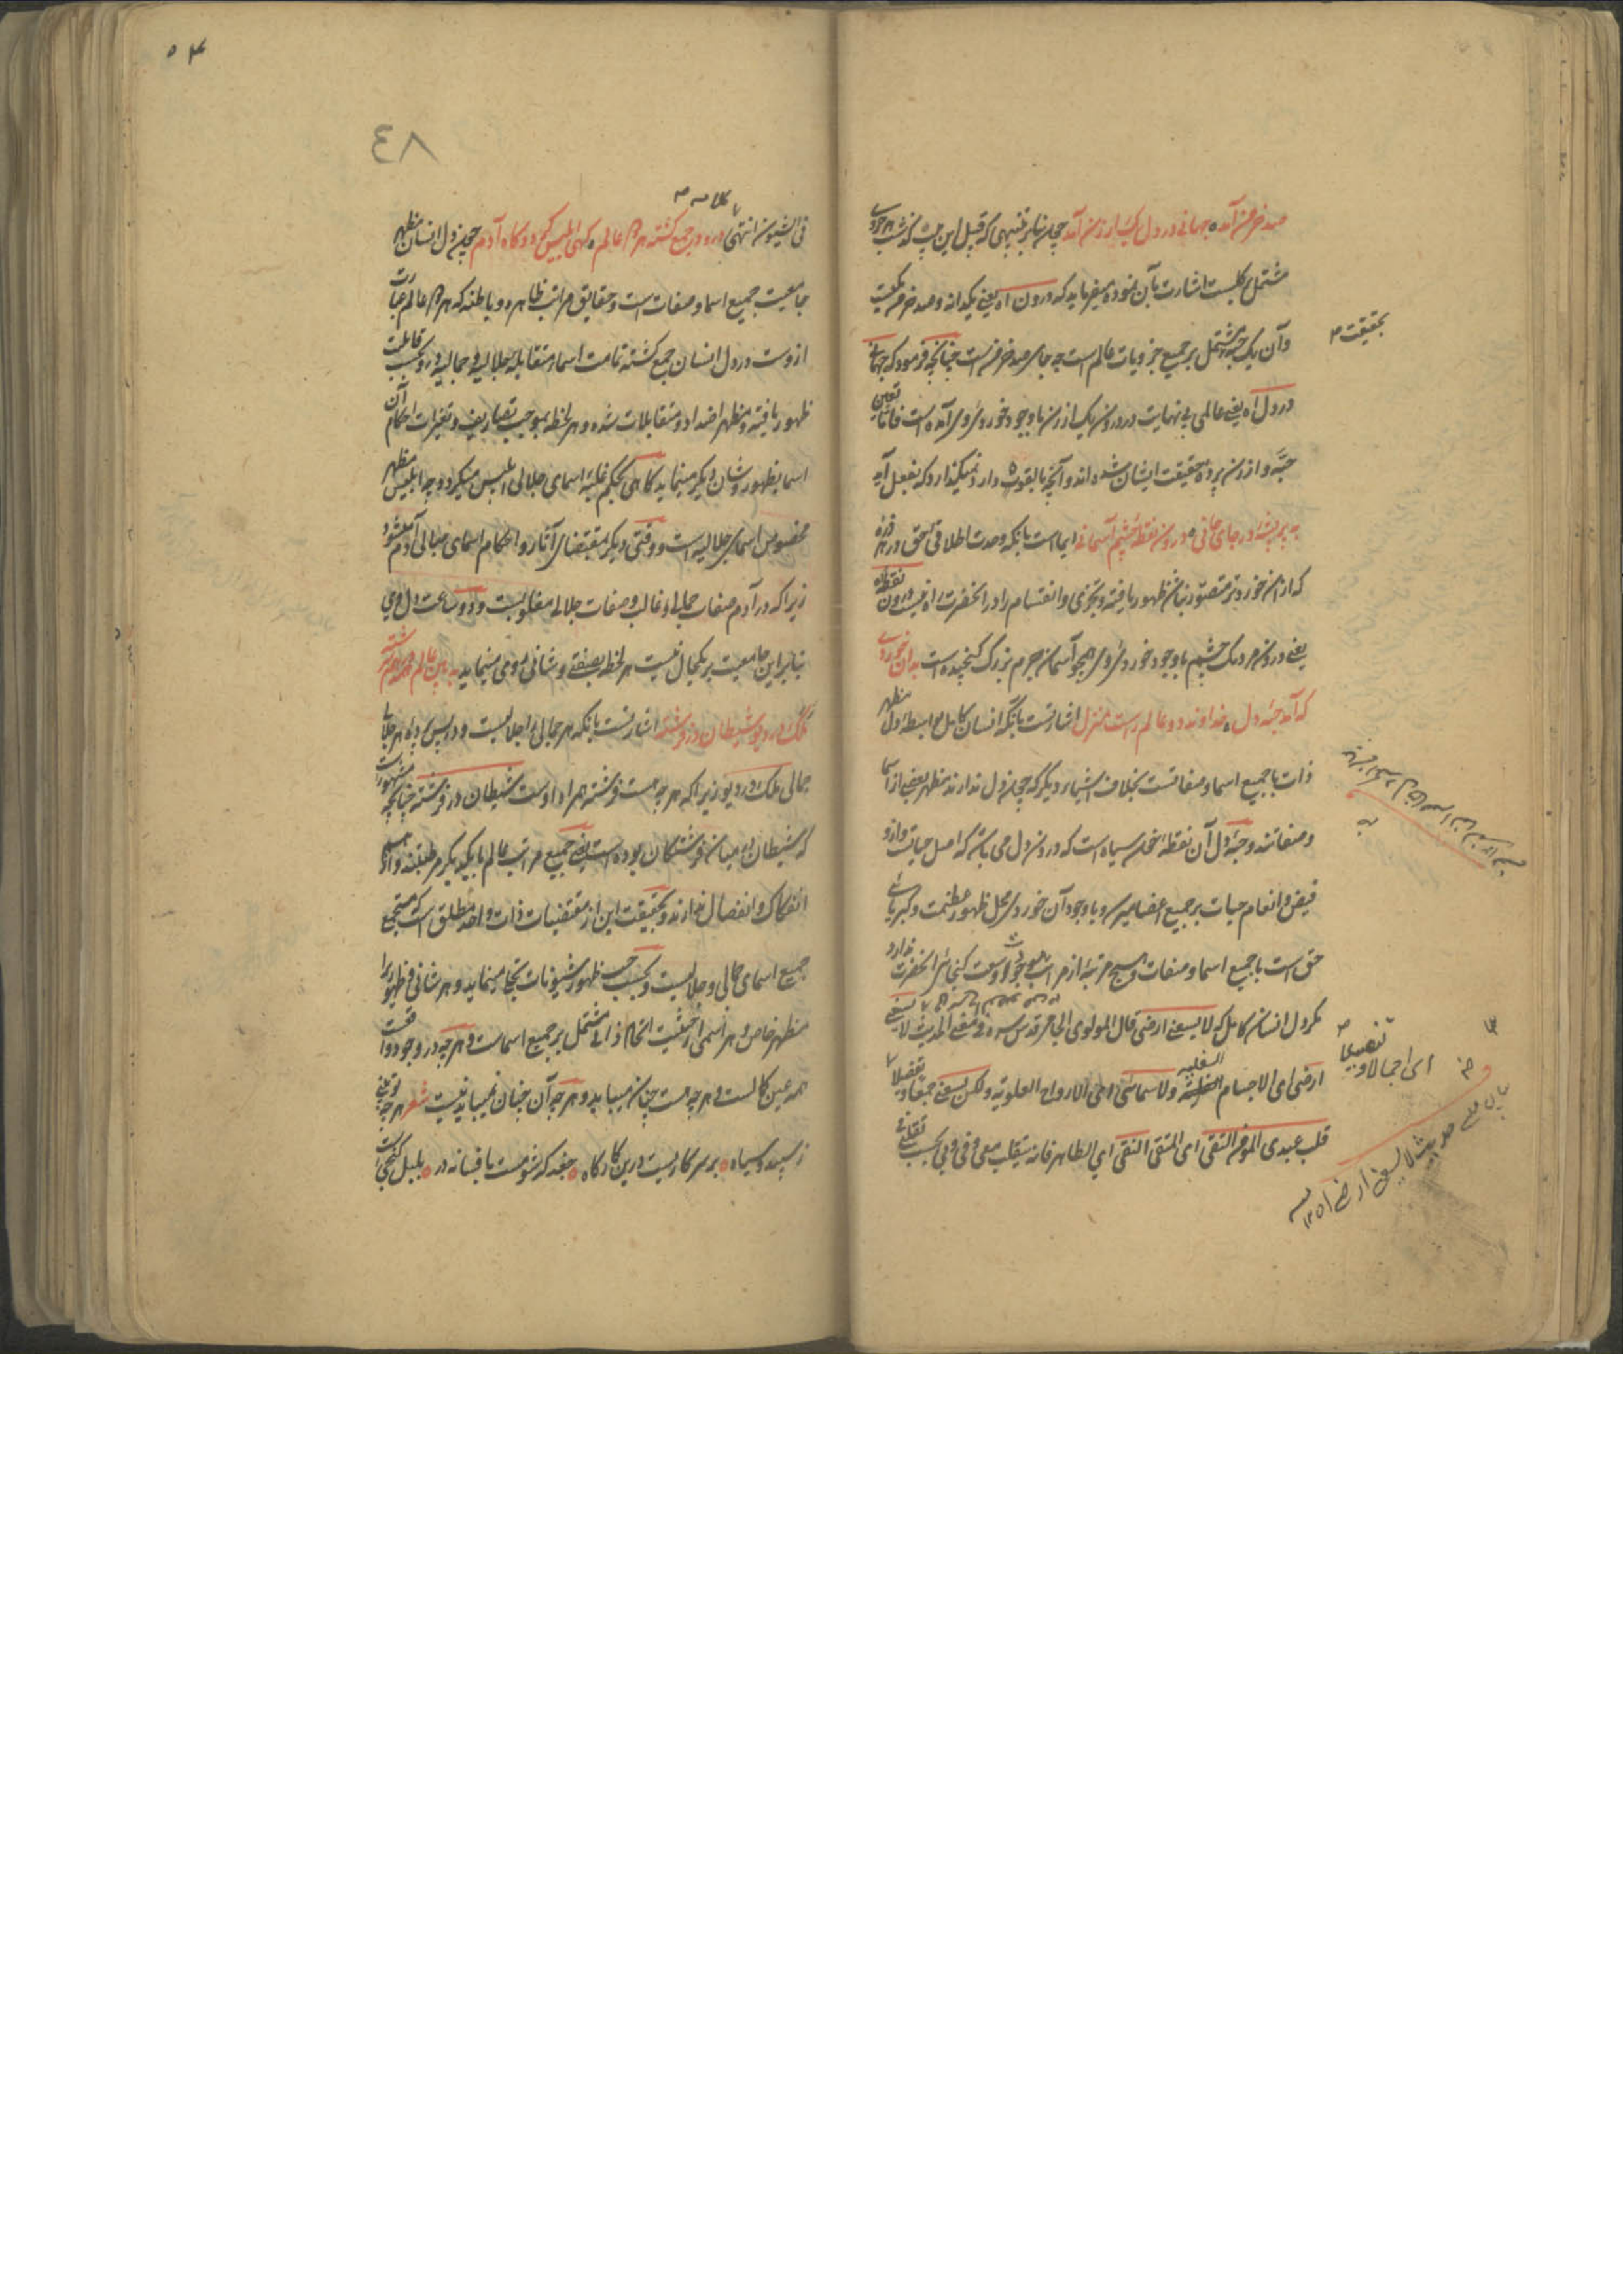 صد خرمن آمده جهانی در دل یک ارزن آمد چون بنابر تنبیهی که قبل ازین گذشت هر جزوی
مشتمل بر کلیست اشارت بآن نموده میفرماید که درون اه یعنی یکدانه و صد خرمن
بحقیقت
و آن یک حبه مشتمل بر جمیع جزویات عالم است چه جای صد خرمنست چنانچه فرمود که جهانی
در دل اه یعنی عالمی بی نهایت در درون یک ارزن با وجود خوردی او در آمده است فاما تعین
حبه و ارزن پرده حقیقت ایشان شده اند و آنچه بالقوه دارد نمیگذارد که بفعل آید
به پر پشه در جای جانی درون نقطه چشم آسمانی ایماست بانکه وحدت اطلاقی حق در هر ذره
که از ان خوردتر متصور نباشد ظهور یافته و تجزی و انقسام را در آنحضرت راه نیست درون نقطه اه
یعنی درون مردمک چشم با وجود خوردی او همچو آسمان جرم بزرگ گنجیده است بدان خوردی
که آمد حبه دل خداوند دو عالم راست منزل اشارتست بآنکه انسان کامل بواسطه دل مظهر
ذات با جمیع اسما و صفاتست بخلاف اشیاء دیگر که چون دل ندارند مظهر بعضی از اسما
و صفاتند و حبه دل آن نقطه خون سیاه است که درون دل می باشد که اصل حیاتست و ازو
فیض و انعام حیات بر جمیع اعضا میرسد و با وجود آن خوردی محل ظهور عظمت و کبریائی
حق است با جمیع اسما و صفات و هیچ مرتبه از مراتب موجودات وسعت گنجائی آنحضرت ندارد
مگر دل انسان کامل که لا یسعنی ارضی قال المولوی الجامی قدس سره فی معنی الحدیث لا یسعنی
ارضی ای الاجسام السفلیه ولا سمائی ای الارواح العلویه ولکن یسعنی جمعا و تفصیلا
ای اجمالا و تفصیلا
قلب عبدی المؤمن التقی ای المتقی النقی ای الطاهر فانه یتقلب معی و فی و بی بحسب تقلباتی
بیان معنی حدیث لا یسعنی ارضی
۴۸
فی الشیون انتهی درو در جمع گشته هر دو عالم گهی ابلیس گردد گاه آدم چون دل انسان مظهر
جامعیت جمیع اسما و صفات است و حقایق مراتب ظاهره و باطنه که هر دو عالم عبارت
ازوست در دل انسان جمع گشته تمامت اسماء متقابله جلالیه و جمالیه در وی بحسب قابلیت
ظهور یافته و مظهر اضداد و متقابلات شده و هر لحظه بموجب تصاریف و تغیرات احکام آن
اسما بظهور و شان دیگر مینماید گاهی بحکم غلبه اسمای جلالی ابلیس میگردد چه ابلیس مظهر
مخصوص اسمای جلالیه است و وقتی دیگر بمقتضای آثار و احکام اسمای جمالی آدم میشود
زیرا که در آدم صفات جمالی او غالب و صفات جلالی مغلوبست و درو ساعت دل آدمی
بنابر این جامعیت بر یکحال نیست هر لحظه بصفتی و شانی روی مینماید به بین عالم همه در هم سرشته
ملک در دیو و شیطان در فرشته اشارتست بآنکه هر جمالی را جلالیست و در پس پرده هر جلالی
جمالی ملک در دیو زیرا که هر چه هست فرشته همراه اوست شیطان در فرشته چنانچه مشهورست
که شیطان در میان فرشتگان بوده است یعنی جمیع مراتب عالم بایکدیگر مرتبطند و از هم
انفکاک و انفصال ندارند و بحقیقت این از مقتضیات ذات واحد مطلق است که مستجمع
جمیع اسمای جمالی و جلالیست و بحسب ظهور شیونات تجلی مینماید و هر شانی و ظهوری را
مظهر خاص و هر اسمی از حیثیت اتحاد ذاتی مشتمل بر جمیع اسماست و هر چه در وجود واقعست
همه عین کمالست و هر چه هست چنان میباید و هر چه آن چنان نمیباید نیست شعر هر چه تو بینی
ز سپید و سیاه بر سر کاریست درین کارگاه جغد که شومست بافسانه در بلبل گنجست